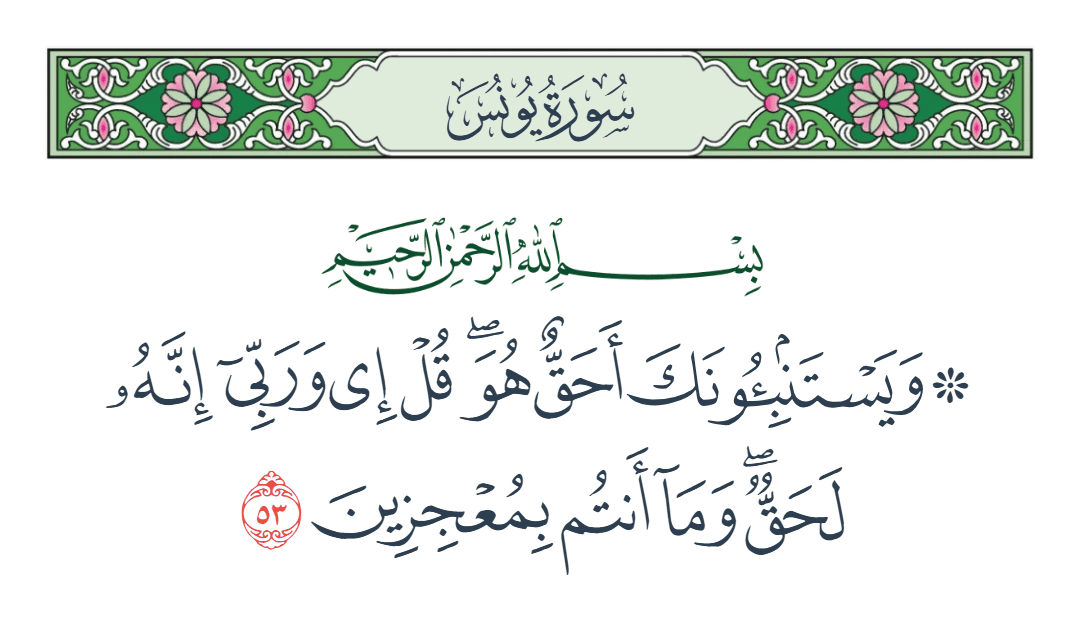 سُورَةُ يُونُسَ
بِسْمِ ٱللَّهِ ٱلرَّحْمَٰنِ ٱلرَّحِيمِ
۞ وَيَسْتَنۢبِـُٔونَكَ أَحَقٌّ هُوَۖ قُلْ إِى وَرَبِّىٓ إِنَّهُۥ
لَحَقٌّۖ وَمَآ أَنتُم بِمُعْجِزِينَ ٥٣